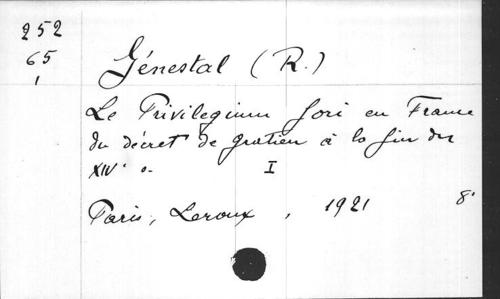 252
65
1
Génestal (R.)
Le Privilegium fori en France
du décret de Gratien à la fin du
XIVe s. I
Paris, Leroux, 1921 8°